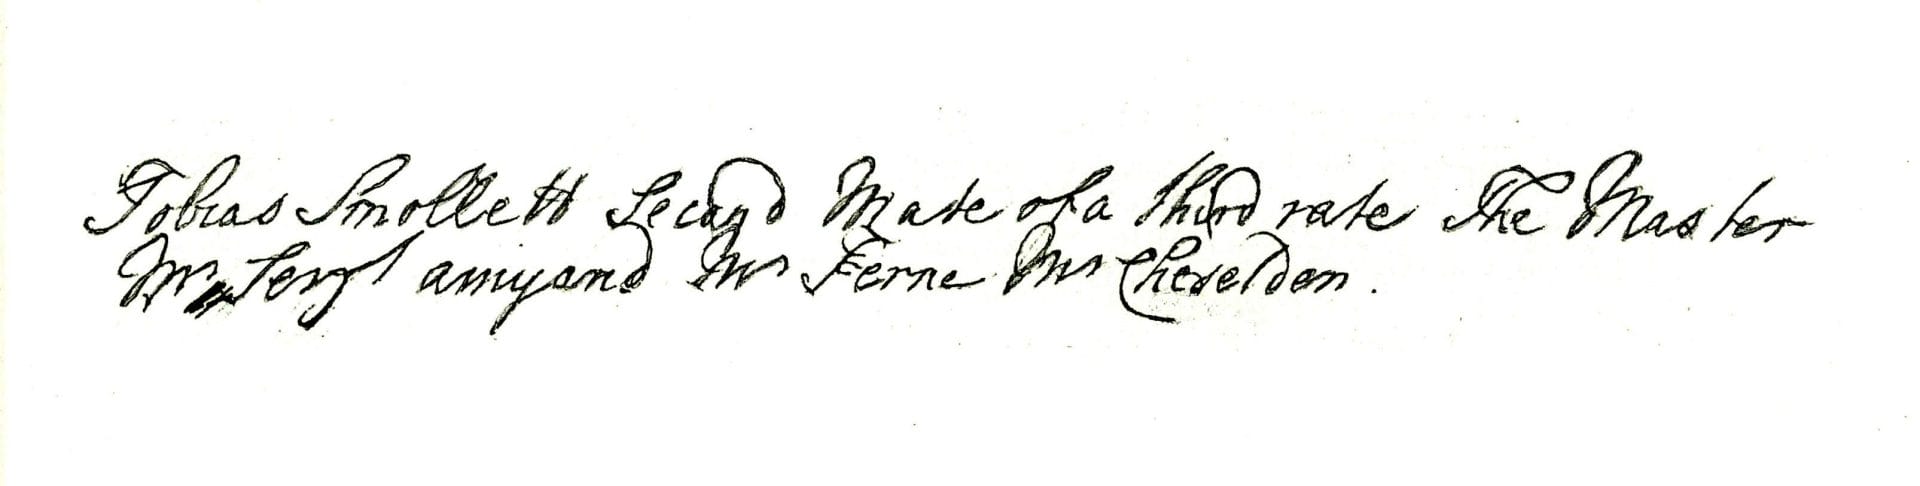 Tobias Smollett Second Mate of a third rate The Master
Mr Serjt amyand Mr Ferne Mr Cheselden.